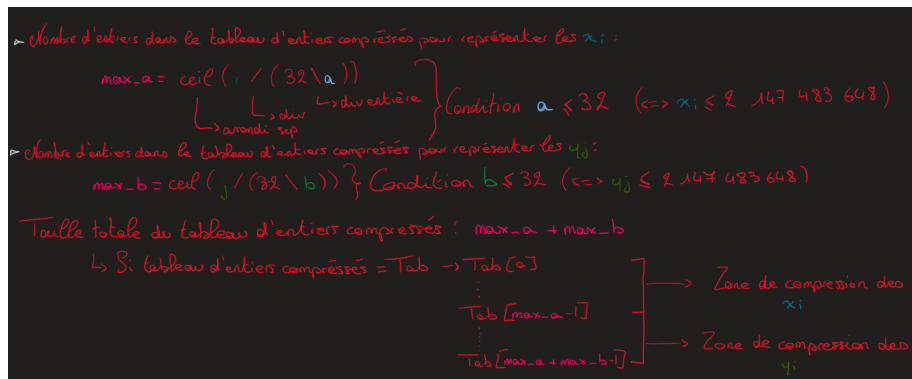 ➤ Nombre d'entiers dans le tableau d'entiers compressés pour représenter les xi :
max_a = ceil ( i / ( 32 \ a ) )
↳ div entière
↳ div
↳ arrondi sup
Condition a ≤ 32 ( <=> xi ≤ 2 147 483 648 )
➤ Nombre d'entiers dans le tableau d'entiers compressés pour représenter les yj :
max_b = ceil ( j / ( 32 \ b ) ) } Condition b ≤ 32 ( <=> yj ≤ 2 147 483 648 )
Taille totale du tableau d'entiers compressés : max_a + max_b
↳ Si tableau d'entiers compréssés = Tab → Tab [0]
⋮
Tab [max_a-1]
⋮
Tab [max_a + max_b-1]
→ Zone de compression des xi
→ Zone de compression des yi